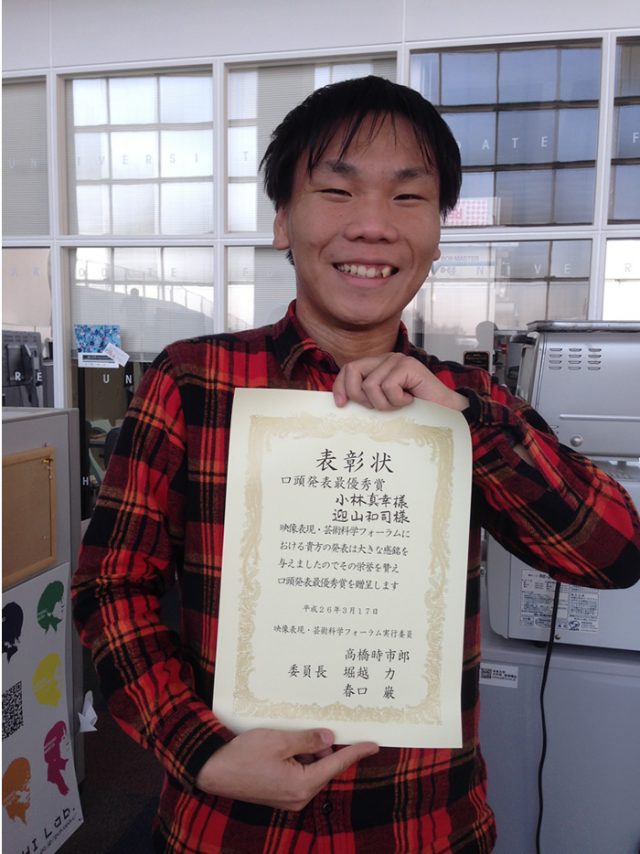 表彰状
口頭発表最優秀賞
小林真幸様
迎山和司様
映像表現・芸術科学フォーラムに
おける貴方の発表は大きな感銘を
与えましたのでその栄誉を讃え
口頭発表最優秀賞を贈呈します
平成26年3月17日
映像表現・芸術科学フォーラム実行委員
高橋時市郎
委員長 堀越 力
春口 巌
UNIVERSIT
ATE F
UNIVER
HI Lab.